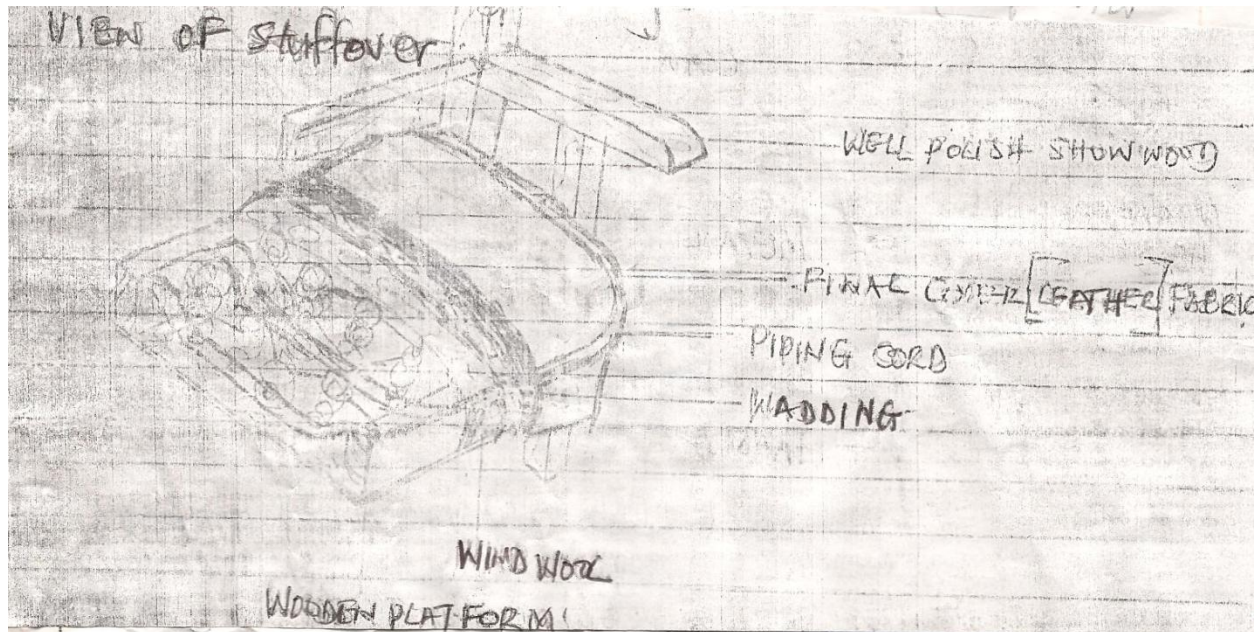 VIEW OF Stuffover
WELL POLISH SHOW WOOD
FINAL COVER [LEATHER] FABRIC
PIPING CORD
WADDING
WIND WOOL
WOODEN PLATFORM